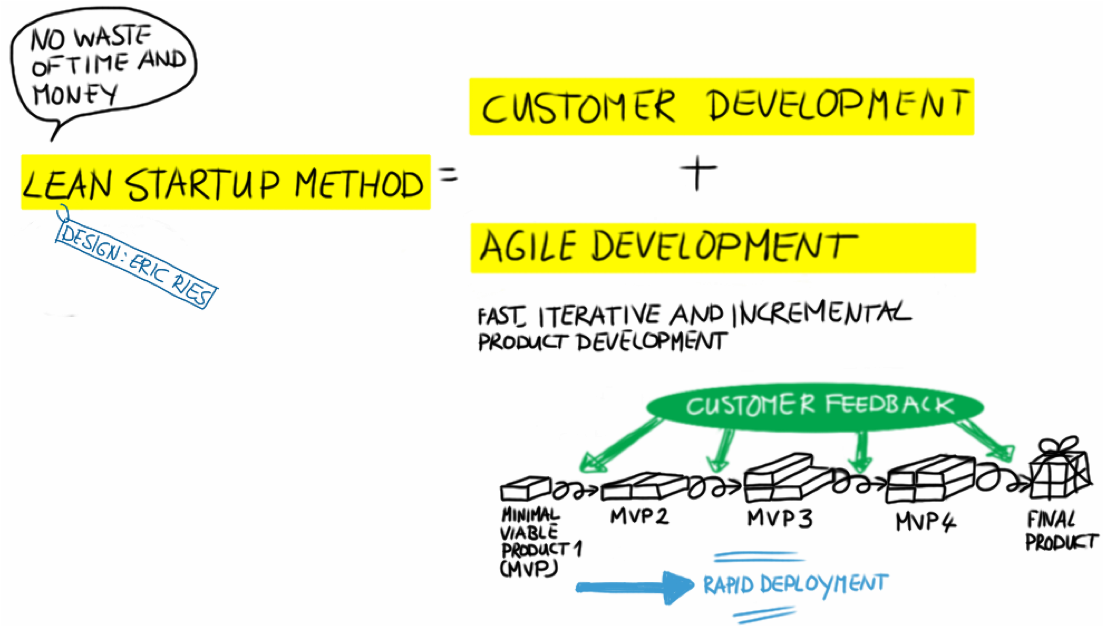 NO WASTE
OF TIME AND
MONEY
LEAN STARTUP METHOD =
DESIGN: ERIC RIES
CUSTOMER DEVELOPMENT
+
AGILE DEVELOPMENT
FAST, ITERATIVE AND INCREMENTAL
PRODUCT DEVELOPMENT
CUSTOMER FEEDBACK
MINIMAL
VIABLE
PRODUCT 1
(MVP)
MVP2
MVP3
MVP4
FINAL
PRODUCT
RAPID DEPLOYMENT